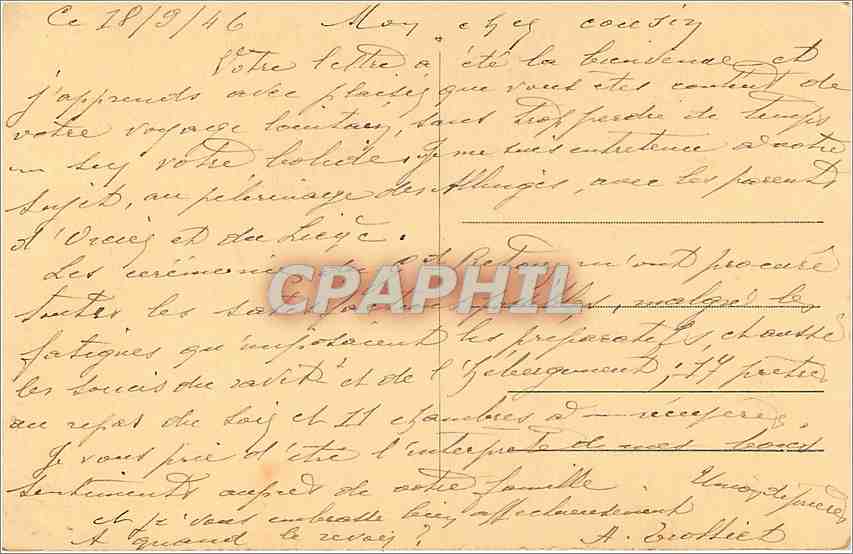 Ce 18/9/46 Mon cher cousin
Votre lettre a été la bienvenue et
j'apprends avec plaisir que vous êtes content de
votre voyage lointain, sans trop perdre de temps
votre bolide. Je me suis entretenu à votre
sujet, au pèlerinage des Allinges, avec les parents
d' et du Liège.
Les cérémonies du Gd Retour m'ont procuré
toutes les malgré les
fatigues qu'imposaient les préparatifs,
les soucis du ravitt et de l'hébergement ; 17 prêtres
au repas du soir et 11 chambres à
Je vous prie d'être l'interprète de mes bons
sentiments auprès de votre famille. Union de prières
et je vous embrasse bien affectueusement
A quand le revoir ? A.
CPAPHIL